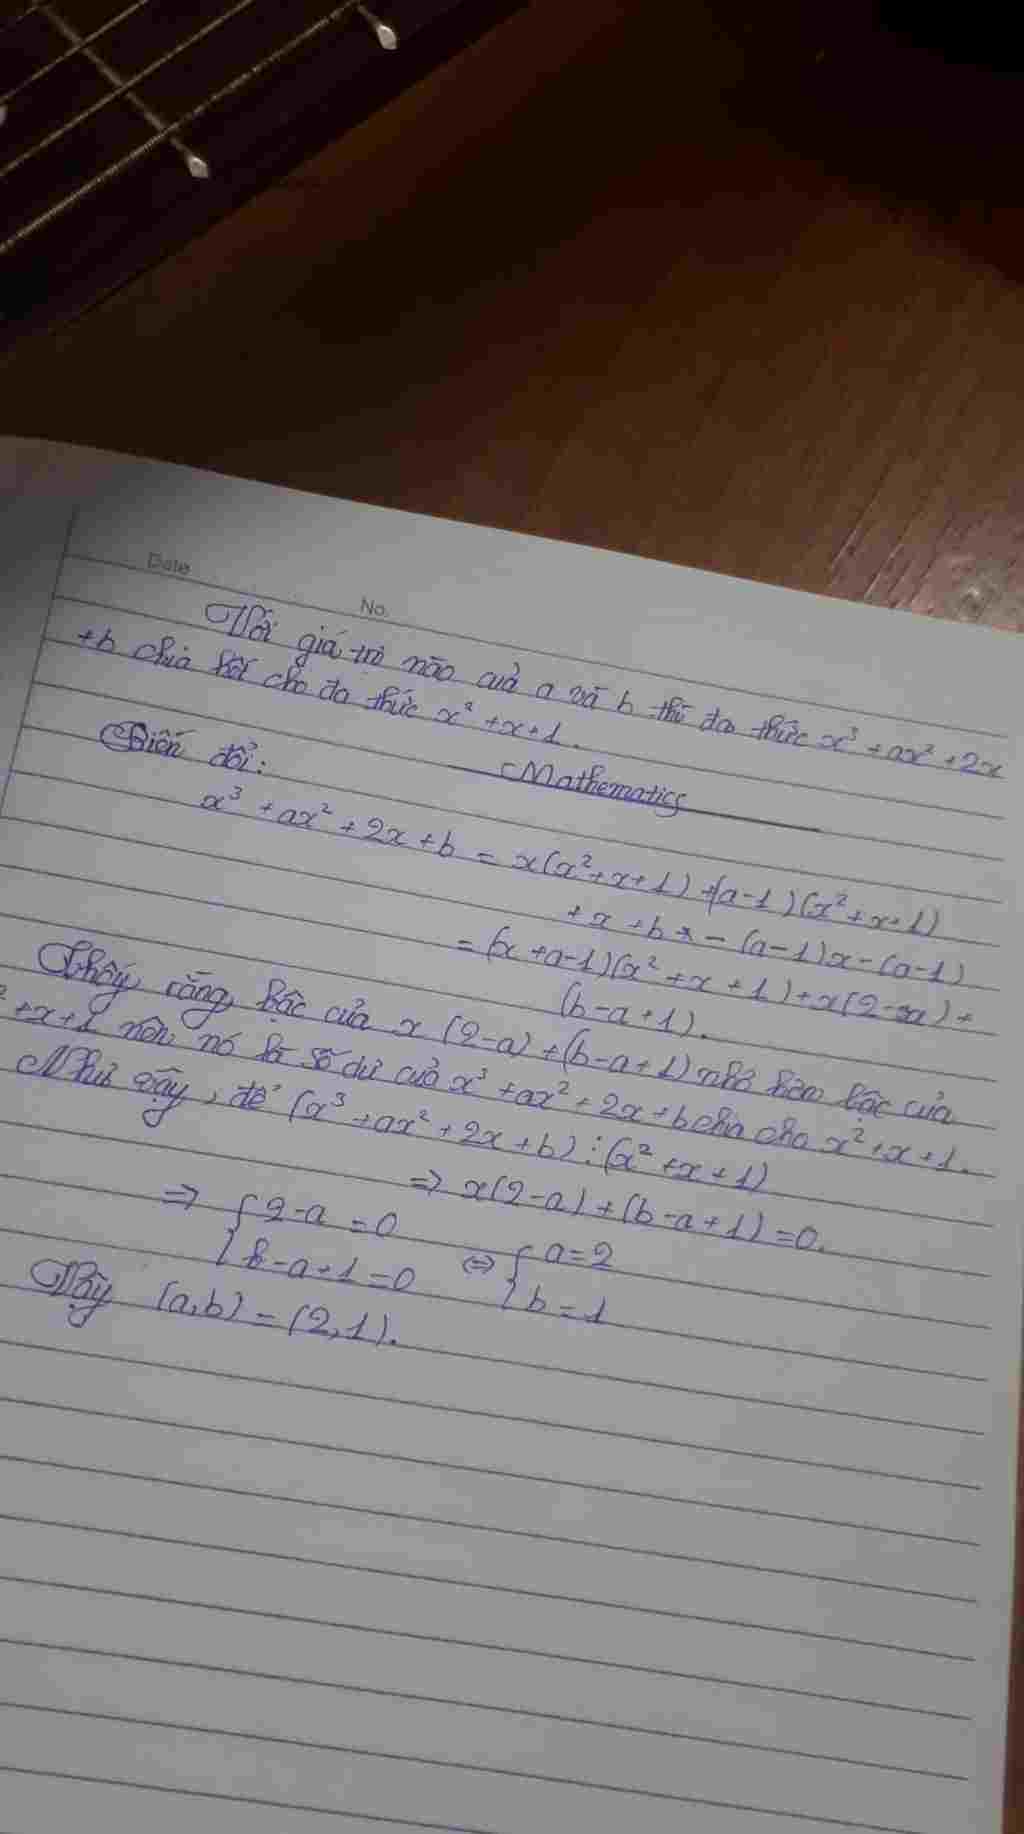 Date
No.
Với giá trị nào của a và b thì đa thức x³ + ax² + 2x
+b chia hết cho đa thức x² + x + 1.
Mathematics
Biến đổi:
x³ + ax² + 2x + b = x(x² + x + 1) + (a-1)(x² + x + 1)
+ x + b - (a-1)x - (a-1)
= (x + a-1)(x² + x + 1) + x(2-a) +
(b-a+1).
Thấy rằng, bậc của x(2-a) + (b-a+1) nhỏ hơn bậc của
² + x + 1 nên nó là số dư của x³ + ax² + 2x + b chia cho x² + x + 1.
Như vậy, để (x³ + ax² + 2x + b) ⋮ (x² + x + 1)
⇒ x(2-a) + (b-a+1) = 0.
⇒ { 2-a = 0 ⇔ { a = 2
b-a+1 = 0 b = 1
Vậy (a,b) = (2,1).